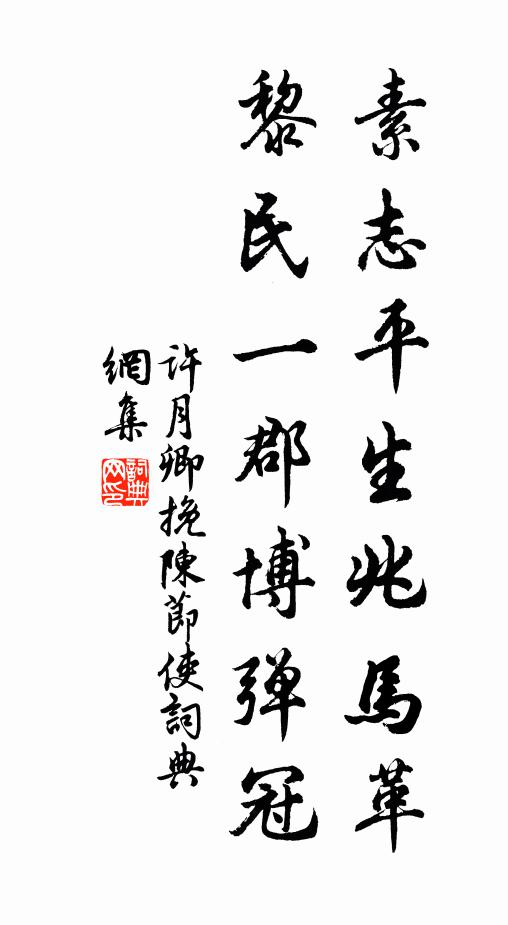 素志平生兆馬革
黎民一郡博弹冠
許月卿挽陳節使詞典
網集
詞典网印